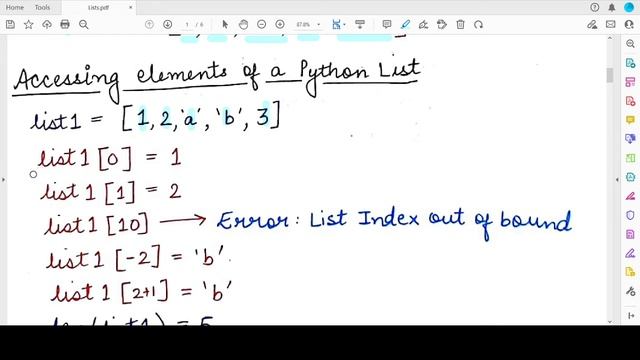 Home Tools Lists.pdf
1 / 6 87.8%
Accessing elements of a Python List
list1 = [1, 2, 'a', 'b', 3]
list1 [0] = 1
list1 [1] = 2
list1 [10] → Error: List Index out of bound
list1 [-2] = 'b'.
list1 [2+1] = 'b'
len(list1) = 5